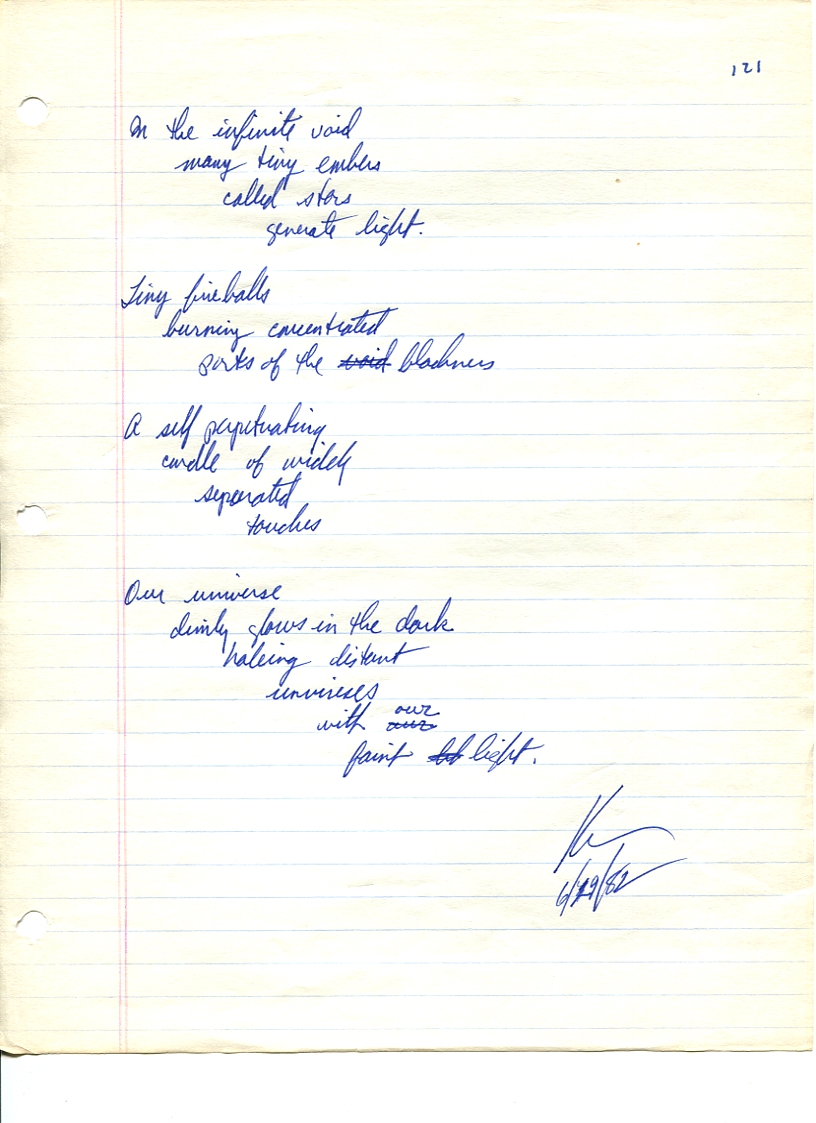 121
In the infinite void
many tiny embers
called stars
generate light.
Tiny fireballs
burning concentrated
parts of the void blackness
A self perpetuating
candle of widely
seperated
touches
Our universe
dimly glows in the dark
haleing distant
unvireses
our
with our
faint light.
6/29/82